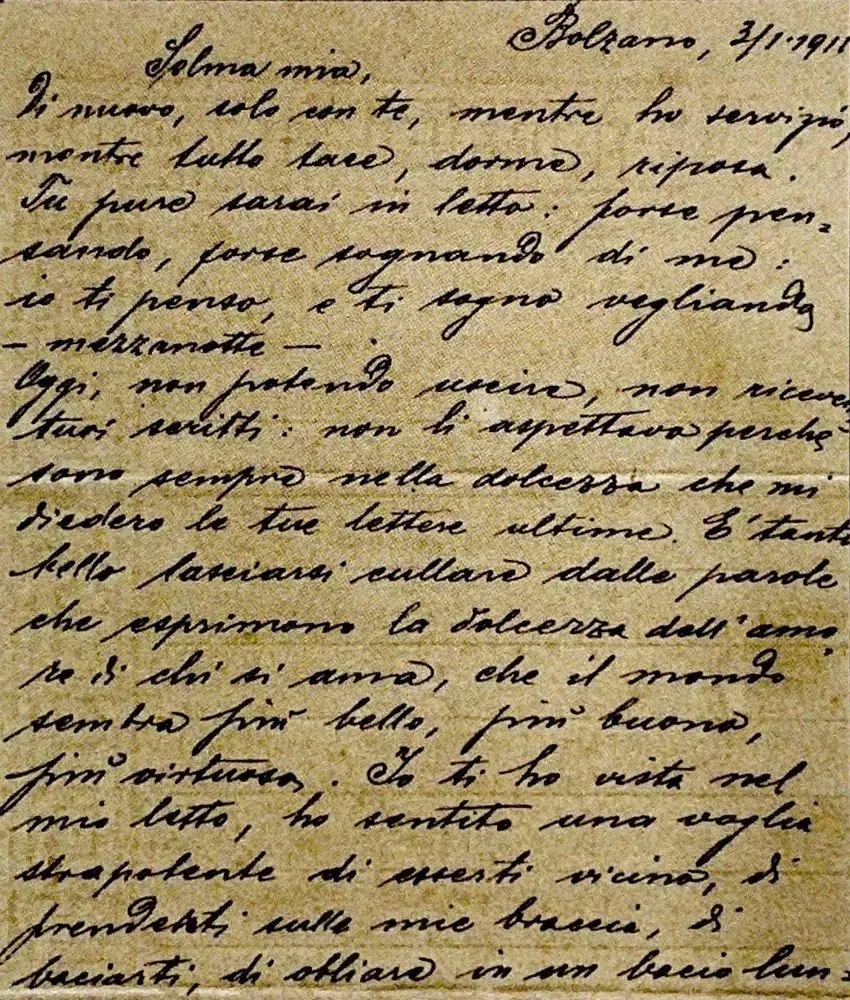 Bolzano, 3/1.1911
Selma mia,
Di nuovo, solo con te, mentre ho servizio,
mentre tutto tace, dorme, riposa.
Tu pure sarai in letto: forse pen=
sando, forse sognando di me:
io ti penso, e ti sogno vegliando
— mezzanotte —.
Oggi, non potendo uscire, non ricevei
tuoi scritti: non li aspettavo perchè
sono sempre nella dolcezza che mi
diedero le tue lettere ultime. E' tanto
bello lasciarsi cullare dalle parole
che esprimono la dolcezza dell'amo
re di chi si ama, che il mondo
sembra più bello, più buono,
più virtuoso. Io ti ho vista nel
mio letto, ho sentito una voglia
strapotente di esserti vicino, di
prenderti sulle mie braccia, di
baciarti, di obliare in un bacio lun=